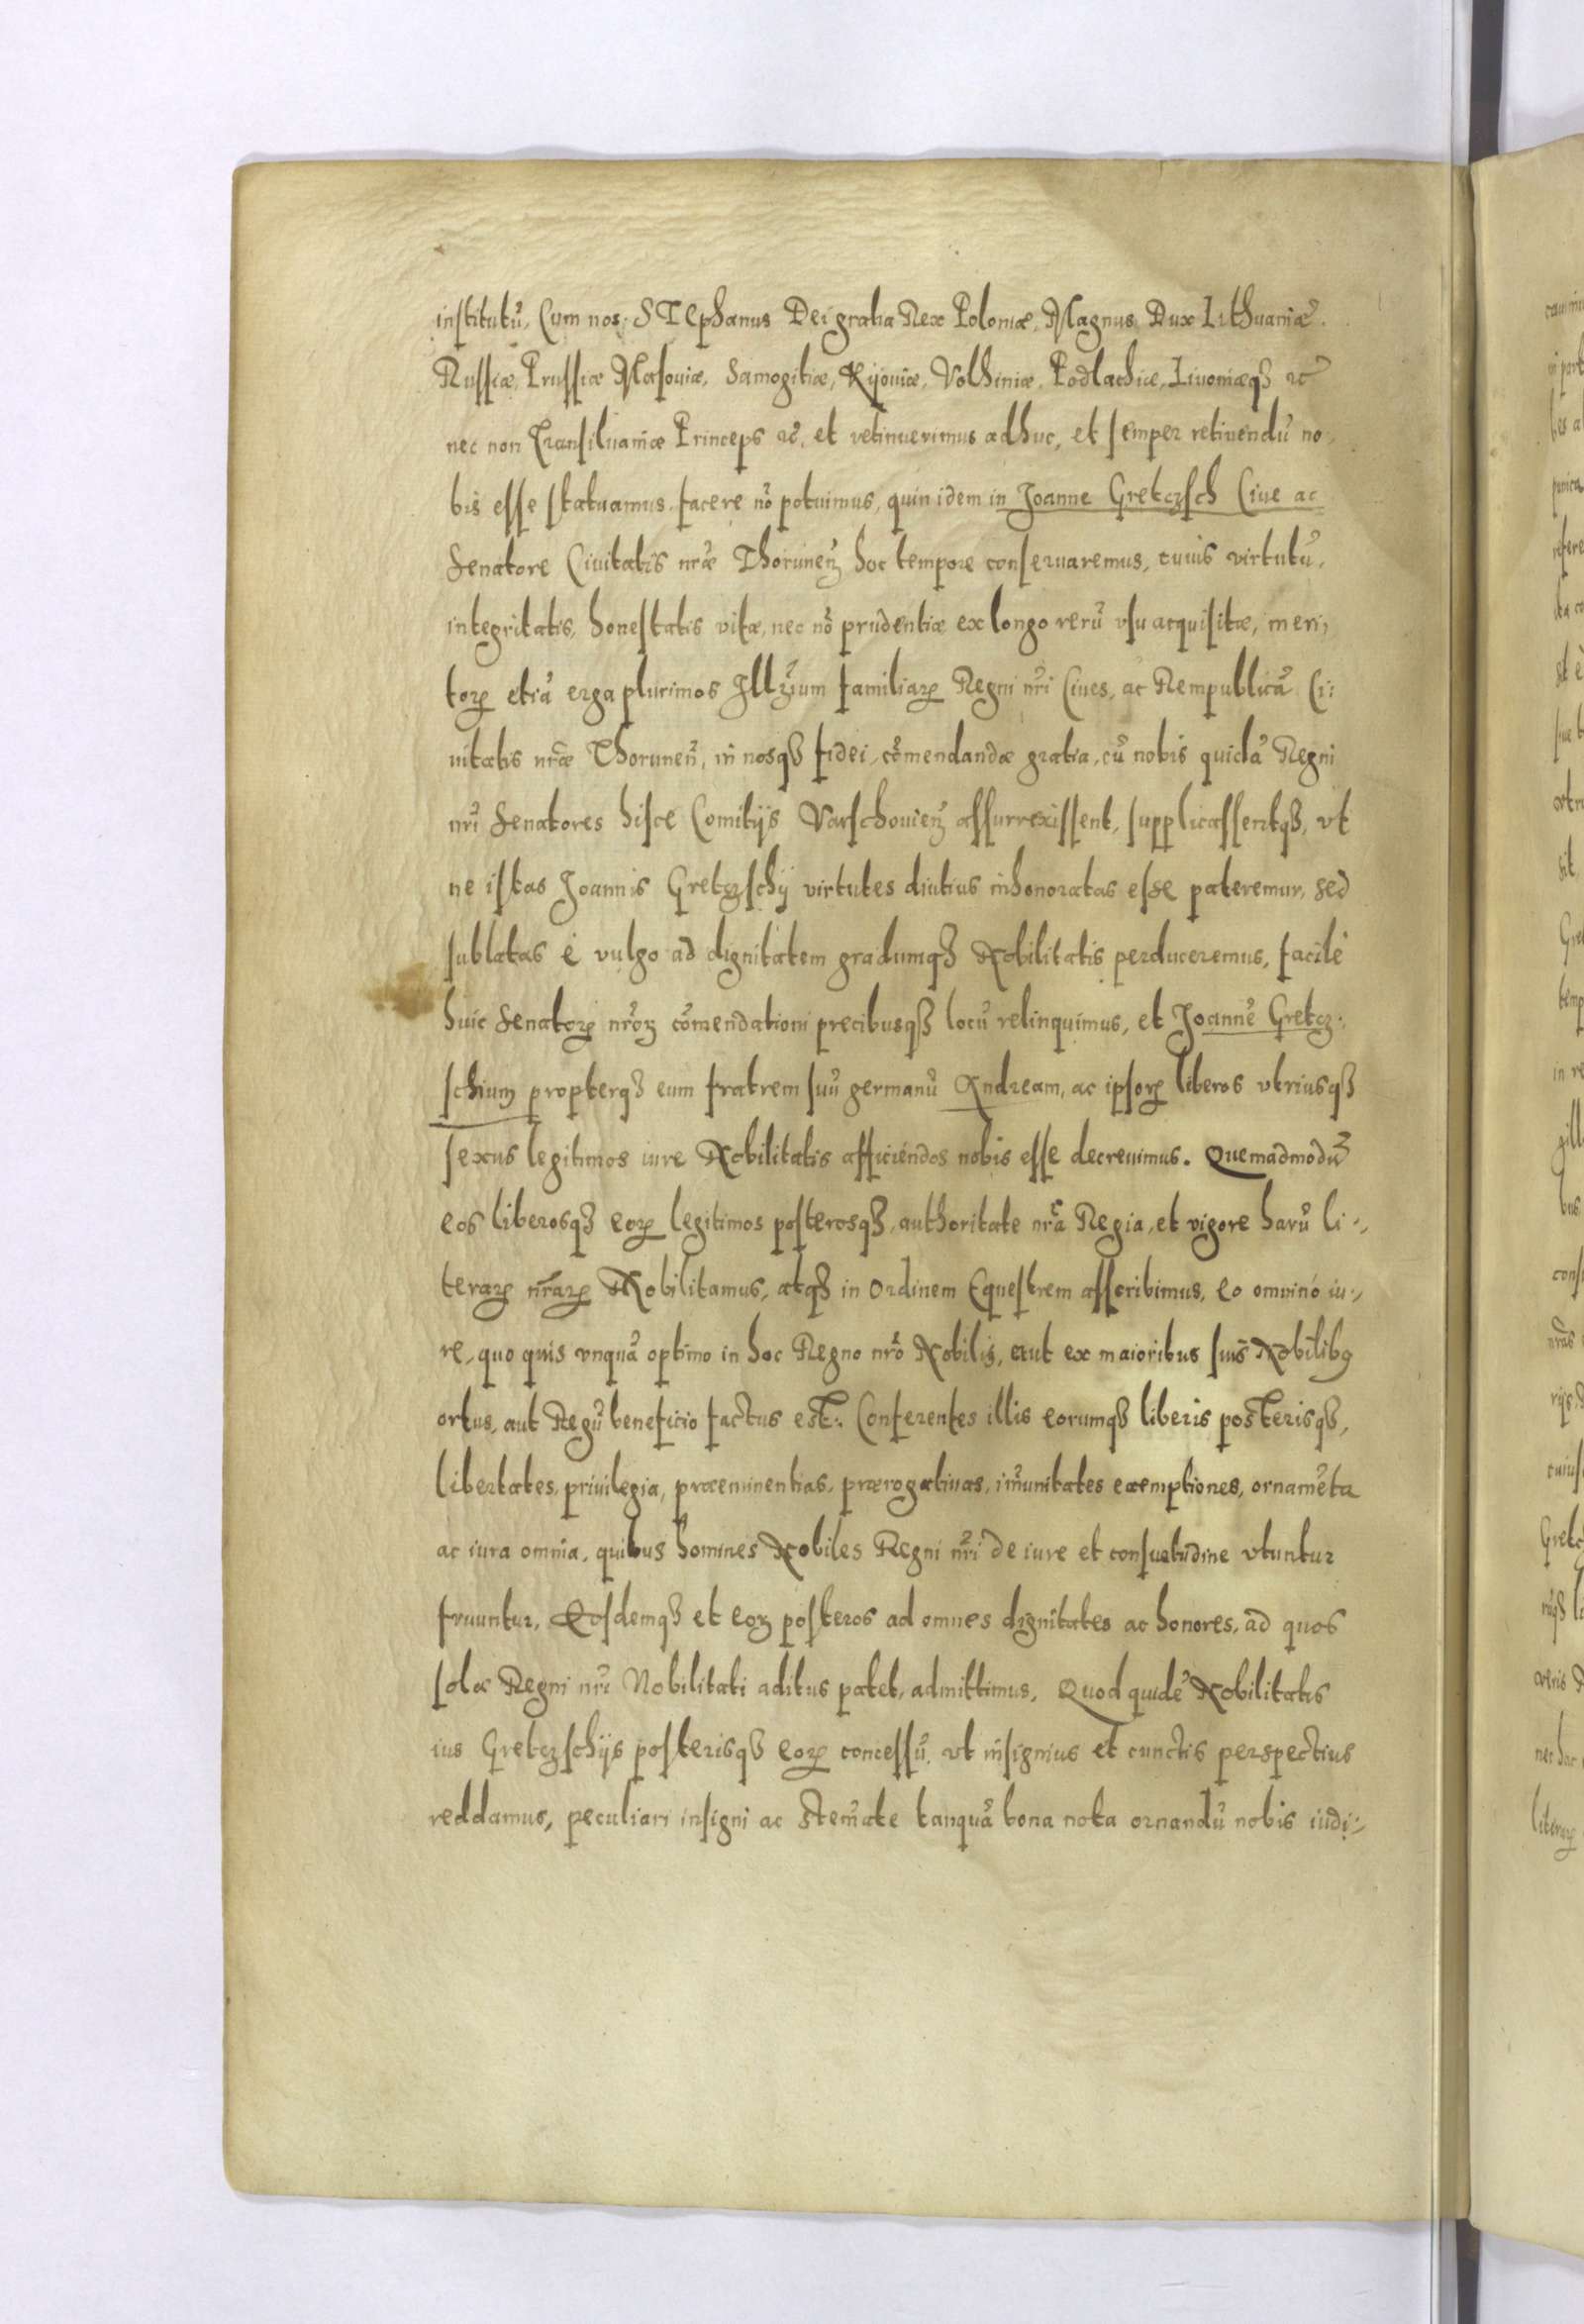 institutū, Cum nos. STEphanus Dei gratia Rex Poloniæ, Magnus Dux Lithuaniæ.
Russiæ, Prussiæ Masouiæ, Samogitiæ, Kijouiæ, Volhiniæ, Podlachiæ, Liuoniæqꝫ ꝛc̃
nec non Transiluaniæ Princeps ꝛc̃, et retinuerimus adhuc, et semper retinendū no,
bis esse statuamus. facere nō potuimus, quin idem in Joanne Gretczsch Ciue ac
Senatore Ciuitatis nr̄æ Thorunen̄ hoc tempore conseruaremus, cuius virtutū,
integritatis, honestatis vitæ, nec nō prudentiæ ex longo rerū vsu acquisitæ, meri,
toꝝ etiā erga plurimos Illr̄ium familiaꝝ Regni nr̄i Ciues, ac Rempublicā Ci:
uitatis nr̄æ Thorunen̄, in nosqꝫ fidei, cōmendandæ gratia, cū nobis quidā Regni
nr̄i Senatores hisce Comitijs Varschouien̄ assurrexissent, supplicassentqꝫ, vt
ne istas Joannis Gretczschij virtutes diutius inhonoratas esse pateremur, sed
sublatas è vulgo ad dignitatem gradumqꝫ Nobilitatis perduceremus, facilè
huic Senatoꝝ nr̄oꝝ cōmendationi precibusqꝫ locū relinquimus, et Joannē Gretcz:
schium propterqꝫ eum fratrem suū germanū Andream, ac ipsoꝝ liberos vtriusqꝫ
sexus legitimos iure Nobilitatis afficiendos nobis esse decreuimus. Quemadmodū
eos liberosqꝫ eoꝝ legitimos posterosqꝫ, authoritate nr̄a Regia, et vigore harū li:,
teraꝝ nr̄aꝝ Nobilitamus, atqꝫ in Ordinem Equestrem asscribimus, eo omnino iu:,
re, quo quis vnquā optimo in hoc Regno nr̄o Nobilis, aut ex maioribus suis Nobilibꝯ
ortus, aut Regū beneficio factus est:. Conferentes illis eorumqꝫ liberis posterisqꝫ,
libertates, priuilegia, præeminentias, prærogatiuas, im̄unitates exemptiones, ornamēta
ac iura omnia, quibus homines Nobiles Regni nr̄i de iure et consuetudine vtuntur
fruuntur, Eosdemqꝫ et eoꝝ posteros ad omnes dignitates ac honores, ad quos
solæ Regni nr̄i Nobilitati aditus patet, admittimus, Quod quidē Nobilitatis
ius Gretczschijs posterisqꝫ eoꝝ concessū, vt insignius et cunctis perspectius
reddamus, peculiari insigni ac stem̄ate tanquā bona nota ornandū nobis iudi:,